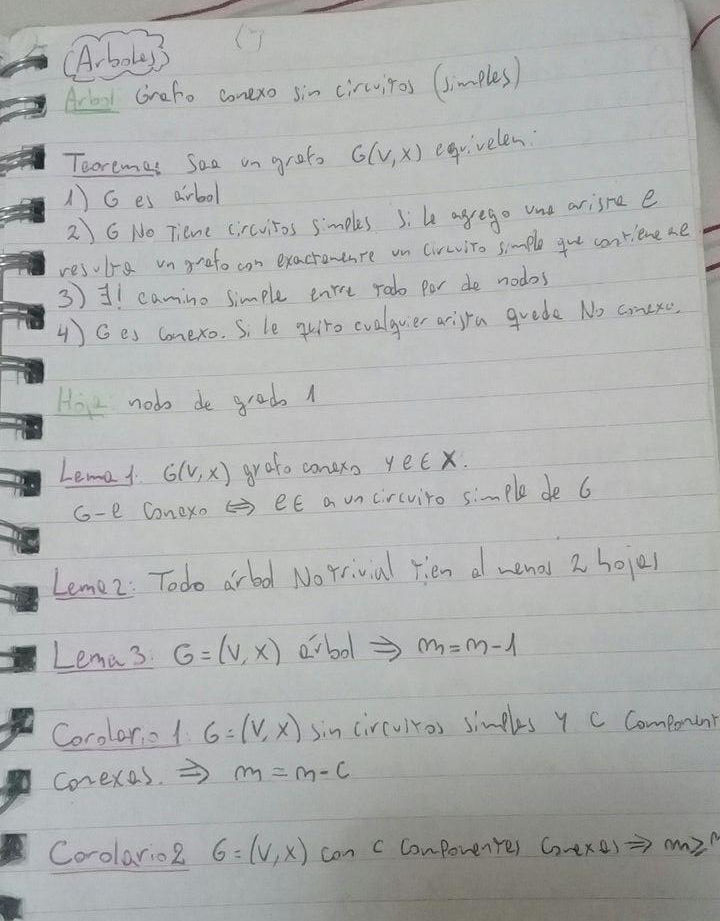 Arboles
Arbol Grafo conexo sin circuitos (simples)
Teorema: Sea un grafo G(V,X) equivelen:
1) G es árbol
2) G No Tiene circuitos simples. Si le agrego una arista e
resulta un grafo con exactamente un circuito simple que contiene a e
3) ∃! camino simple entre todo par de nodos
4) G es conexo. Si le quito cualquier arista queda No conexo.
Hoja: nodo de grado 1
Lema 1: G(V,X) grafo conexo y e ∈ X.
G-e conexo ⇔ e ∈ a un circuito simple de G
Lema 2: Todo árbol No trivial tien al menos 2 hojas
Lema 3: G=(V,X) árbol ⇒ m=n-1
Corolario 1: G=(V,X) sin circuitos simples y C Component
conexas. ⇒ m=n-C
Corolario 2 G=(V,X) con C componentes conexas ⇒ m≥n